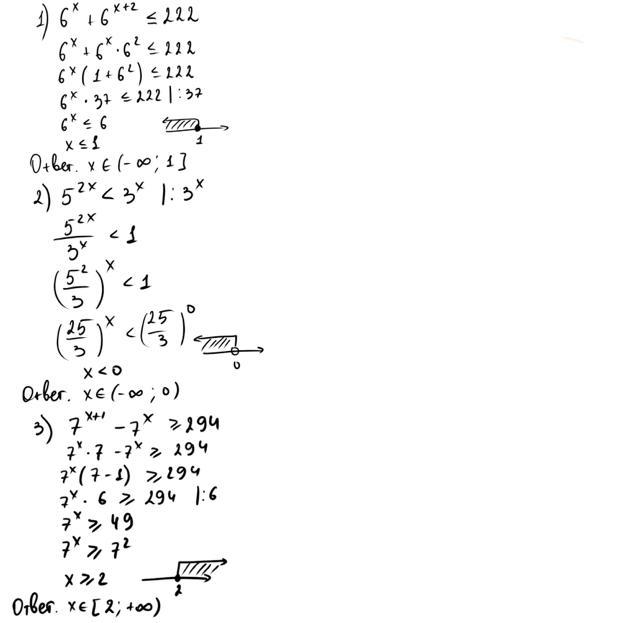 1) 6^x + 6^(x+2) ≤ 222
6^x + 6^x · 6^2 ≤ 222
6^x (1 + 6^2) ≤ 222
6^x · 37 ≤ 222 | : 37
6^x ≤ 6
x ≤ 1
1
Ответ. x ∈ (-∞; 1]
2) 5^(2x) < 3^x | : 3^x
5^(2x)/3^x < 1
(5^2/3)^x < 1
(25/3)^x < (25/3)^0
x < 0
0
Ответ. x ∈ (-∞; 0)
3) 7^(x+1) - 7^x ≥ 294
7^x · 7 - 7^x ≥ 294
7^x (7 - 1) ≥ 294
7^x · 6 ≥ 294 | : 6
7^x ≥ 49
7^x ≥ 7^2
x ≥ 2
2
Ответ. x ∈ [2; +∞)